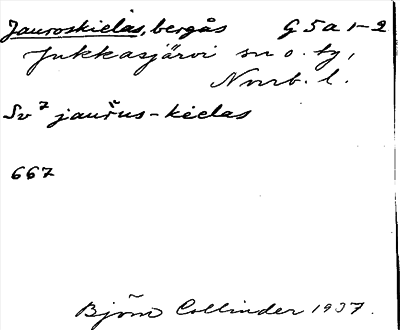 Jauroskielas, bergås G 5 a 1-2
Jukkasjärvi sn o. tg,
Norrb. l.
Sv 7 jaurus-kielas
667
Björn Collinder 1937.